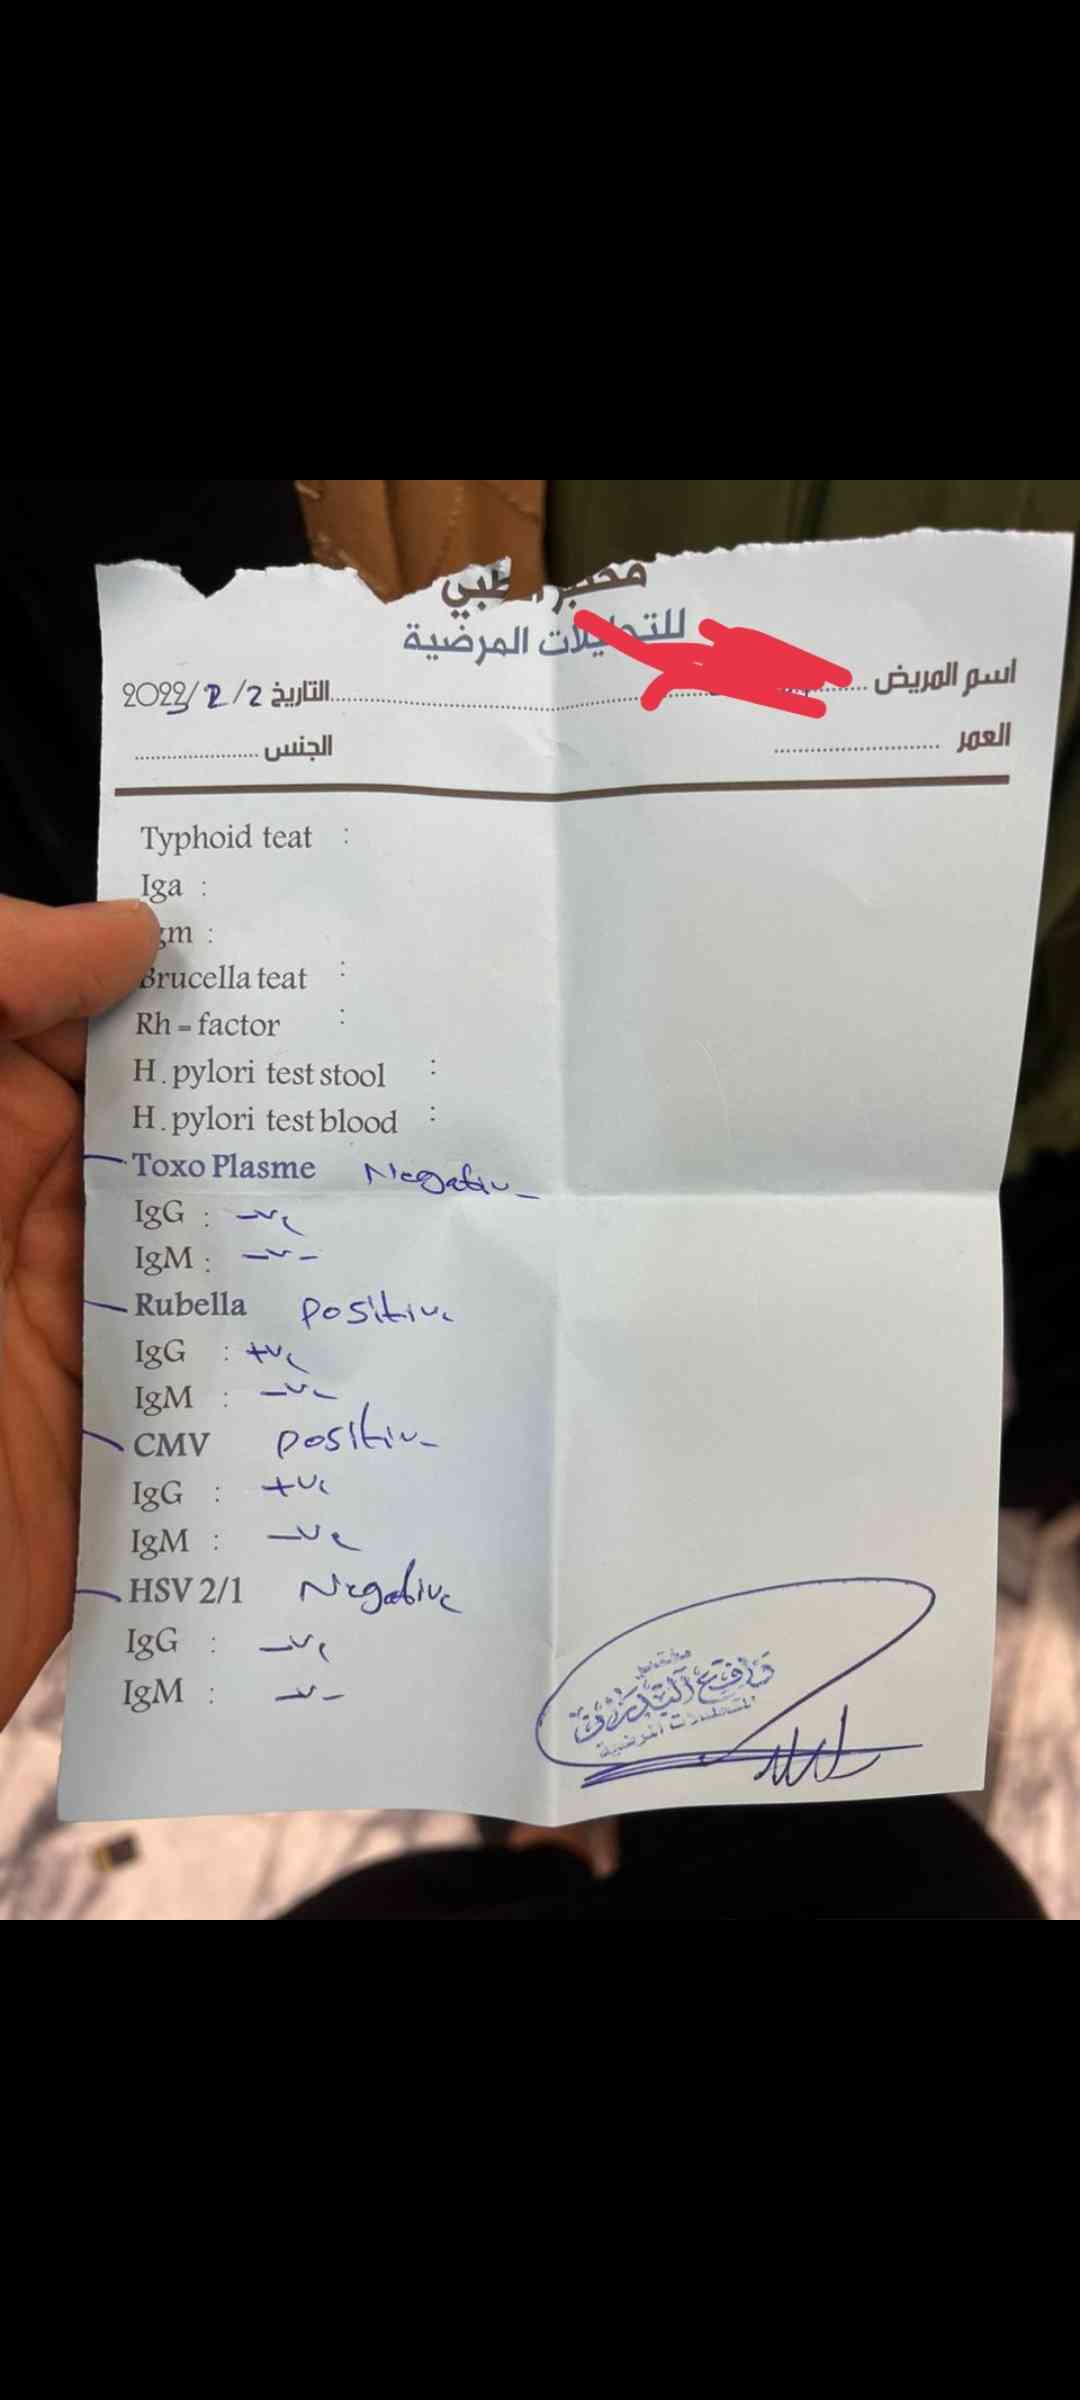 للتحليلات المرضية
اسم المريض
التاريخ 2 / 2 / 2023
العمر
الجنس
Typhoid teat :
Iga :
gm :
Brucella teat :
Rh = factor :
H . pylori test stool :
H . pylori test blood :
Toxo Plasme Negativ
IgG : -ve
IgM : -ve
Rubella positive
IgG : +ve
IgM : -ve
CMV positiv
IgG : +ve
IgM : -ve
HSV 2/1 Negative
IgG : -ve
IgM : -ve
للتحليلات المرضية